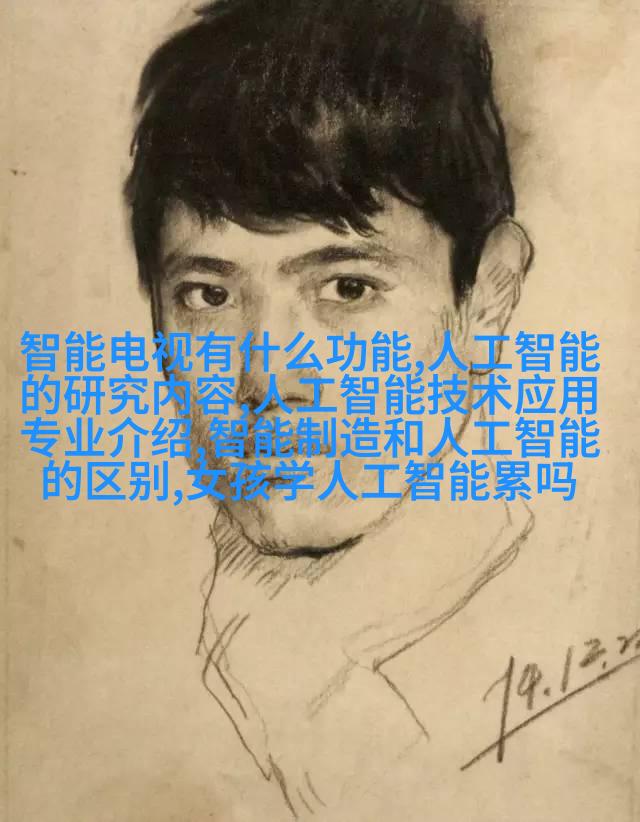 智能电视有什么功能,人工智能
的研究内容,人工智能技术应用
专业介绍,智能制造和人工智能
的区别,女孩学人工智能累吗